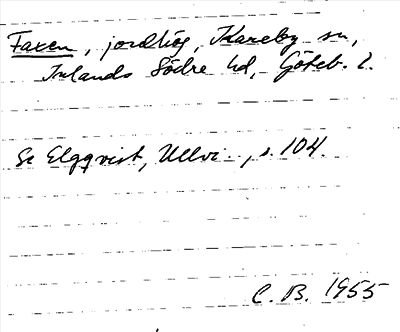 Faxen, jordhög, Kareby sn,
Inlands Södre hd, Göteb. l.
Se Elgqvist, Ullvi-, s. 104.
C. B. 1955